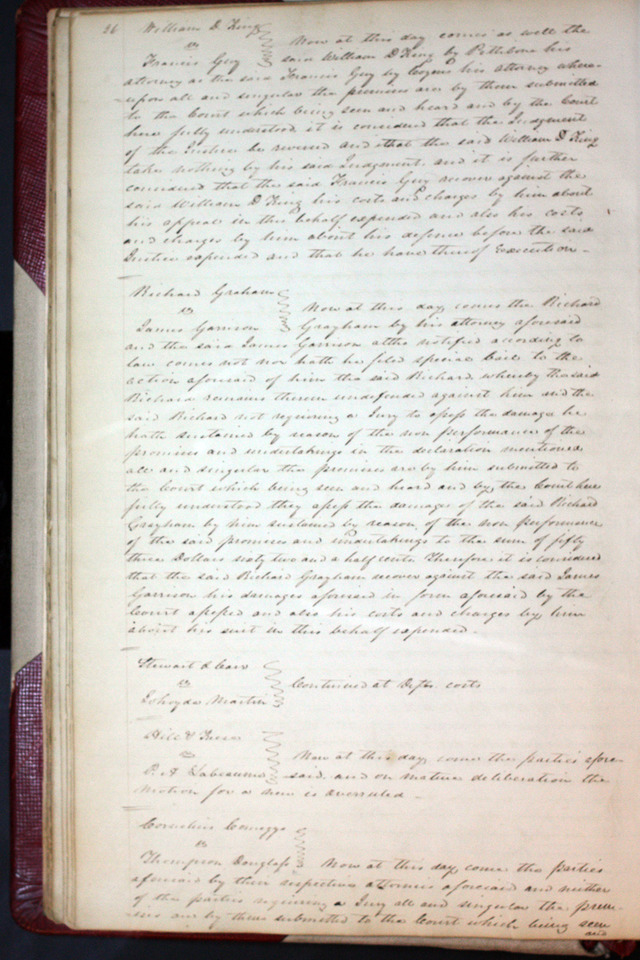 26 William D. King
vs Now at this day comes as well the
Francis Guy said William D King by Pettibone his
attorney as the said Francis Guy by his Attorney where-
upon all and singular the premises are by them submitted
to the Court which being seen and heard and by the Court
here fully understood it is considered that the Judgment
of the Justice be reversed and that the said William D King
take nothing by his said Judgment. and it is further
considered that the said Francis Guy recover against the
said William D King his costs and charges by him about
his appeal in this behalf expended and also his costs
and charges by him about his defence before the said
Justice expended and that he have thereof Execution -
Richard Graham
vs Now at this day comes the Richard
James Garrison Grayham by his attorney aforesaid
and the said James Garrison altho notified according to
law comes not nor hath he filed special bail to the
action aforesaid of him the said Richard whereby the said
Richard remains therein undefended against him and the
said Richard not requiring a Jury to assess the damages he
hath sustained by reason of the non performance of the
promises and undertakings in the declaration mentioned
all and singular the premises are by him submitted to
the Court which being seen and heard and by the Court here
fully understood they assess the damages of the said Richard
Grayham by him sustained by reason of the non performance
of the said promises and undertakings to the sum of fifty
three Dollars sixty two and a half cents. Therefore it is considered
that the said Richard Grayham recover against the said James
Garrison his damages aforesaid in form aforesaid by the
Court assessed and also his costs and charges by him
about his suit in this behalf expended.
Stewart &
vs Continued at Defts. costs
Martin
Hill &
vs Now at this day come the parties afore-
P. A Labeaume said. and on mature deliberation the
motion for a new is overruled -
Cornelius
vs
Thompson Douglass Now at this day come the parties
aforesaid by their respective attornies aforesaid and neither
of the parties requiring a Jury all and singular the prem-
ises are by them submitted to the Court which being seen
and